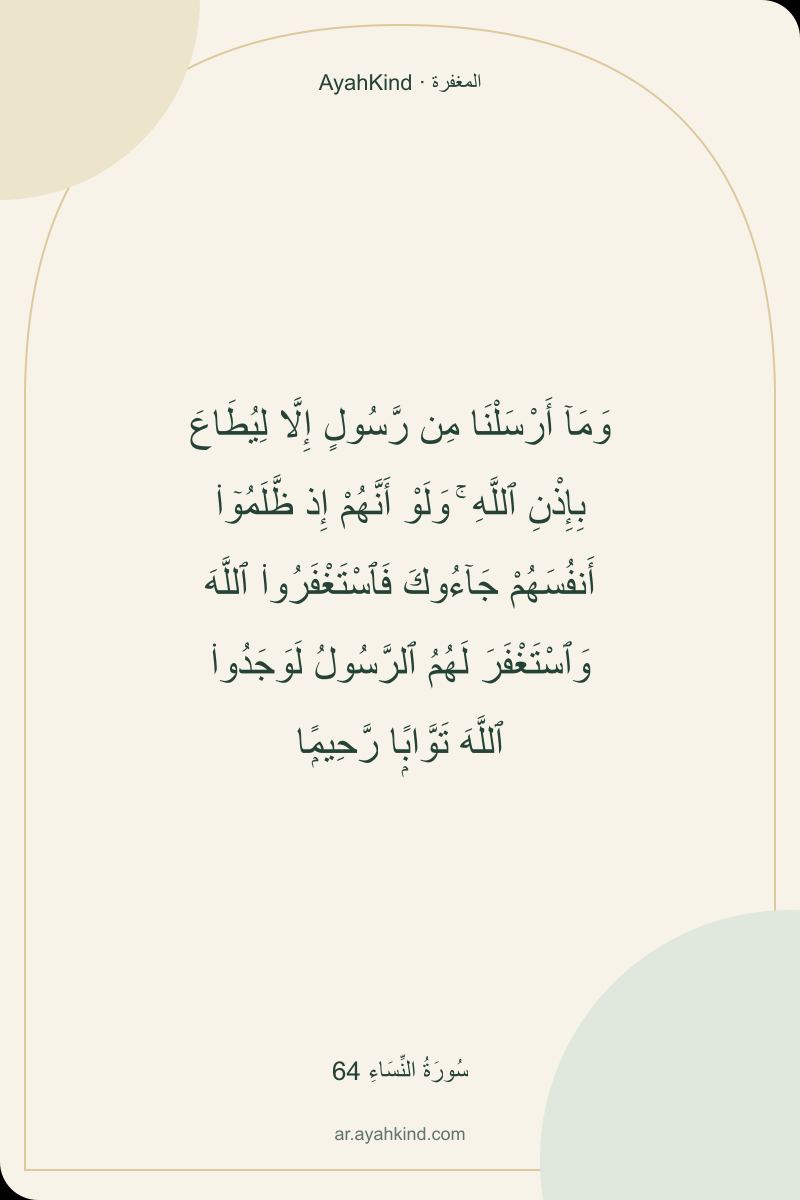 المغفرة · AyahKind
وَمَآ أَرْسَلْنَا مِن رَّسُولٍ إِلَّا لِيُطَاعَ
بِإِذْنِ ٱللَّهِ ۚ وَلَوْ أَنَّهُمْ إِذ ظَّلَمُوٓا۟
أَنفُسَهُمْ جَآءُوكَ فَٱسْتَغْفَرُوا۟ ٱللَّهَ
وَٱسْتَغْفَرَ لَهُمُ ٱلرَّسُولُ لَوَجَدُوا۟
ٱللَّهَ تَوَّابًۭا رَّحِيمًۭا
سُورَةُ النِّسَاءِ 64
ar.ayahkind.com